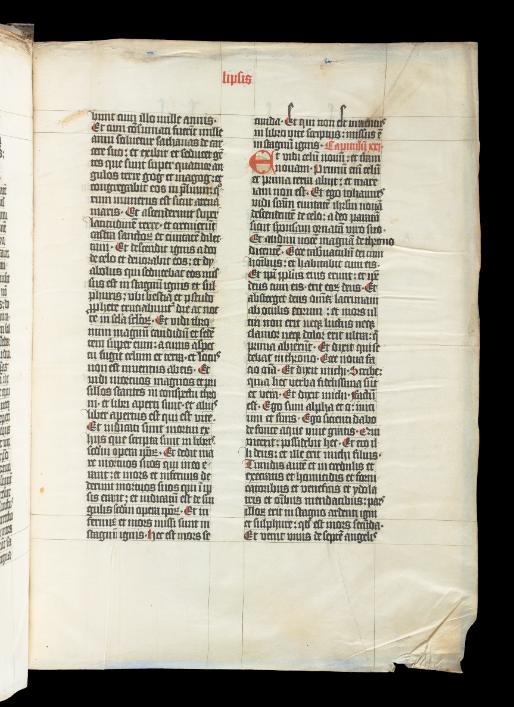 lipsis
bunt cum illo mille annis.
Et cum cōsumati fuerīt mille
anni solvetur sathanas de car
cere suo: et exibit et seducet gē
tes que sunt super quatuor an
gulos terre gog et magog: et
congregabit eos in p̄lium
rum numerus est sicut arena
maris. Et ascenderunt super
latitudinem terre: et circuierūt
castra sanctoꝝ et civitatē dilec
tam. Et descendit ignis a deo
de celo et devorabit eos: et dy
abolus qui seducebat eos mis
sus est in stagnū ignis et sul
phuris: ubi bestia et pseudo
ꝓphete cruciabunt᷑ die ac noc
te in scla scloꝝ. Et vidi thro
num magnū candidū et sedē
tem super eum: a cuius aspec
tu fugit celum et terra: et locus
non est inventus ab eis. Et
vidi mortuos magnos et pu
sillos stantes in conspectu thro
ni. et libri aperti sunt. et alius
liber apertus est qui est vite.
Et iudicati sunt mortui ex
hijs que scripta sunt in libris
scdm opera ipoꝝ. Et dedit ma
re mortuos suos qui in eo e
rant: et mors et infernus de
derunt mortuos suos qui in ip
sis erant: et iudicatū est de sin
gulis scdm opera ipoꝝ. Et in
fernus et mors missi sunt in
stagnū ignis. hec est mors se
cunda. Et qui non est inventus
in libro vite scriptus: missus ē
in stagnū ignis. Capitulū xxi
Et vidi celū novū: et terram
novam. Primū enī celū
et prima terra abijt: et mare
iam non est. Et ego iohannes
vidi scām civitatē ihrlm novā
descendentē de celo: a deo paratā
sicut sponsam ornatā viro suo.
Et audivi vocē magnā de throno
dicentē. Ecce tabnaculū dei cum
hoībus: et habitabit cum eis.
Et ipi ppls eius erunt: et ipe
deus cum eis erit eoꝝ deus. Et
absterget deus omē lacrimam
ab oculis eorum: et mors ul
tra non erit neqꝫ luctus neqꝫ
clamor neqꝫ dolor erit ultra: q̄
prima abierūt. Et dixit qui se
debat in throno. Ecce nova fa
cio oīa. Et dixit michi. Scribe:
quia hec verba fidelissima sūt
et vera. Et dixit michi. Factū
est. Ego sum alpha et o: inici
um et finis. Ego sicienti dabo
de fonte aque vive gratis. Qui
vicerit: possidebit hec. Et ero il
li deus: et ille erit michi filius.
Timidis autē et incredulis et
execratis et homicidis et forni
catoribus et veneficis et ydola
tris et oībus mendacibus: pars
illoꝝ erit in stagno ardenti igni
et sulphure: qd est mors secūda.
Et venit unus de septē angelis